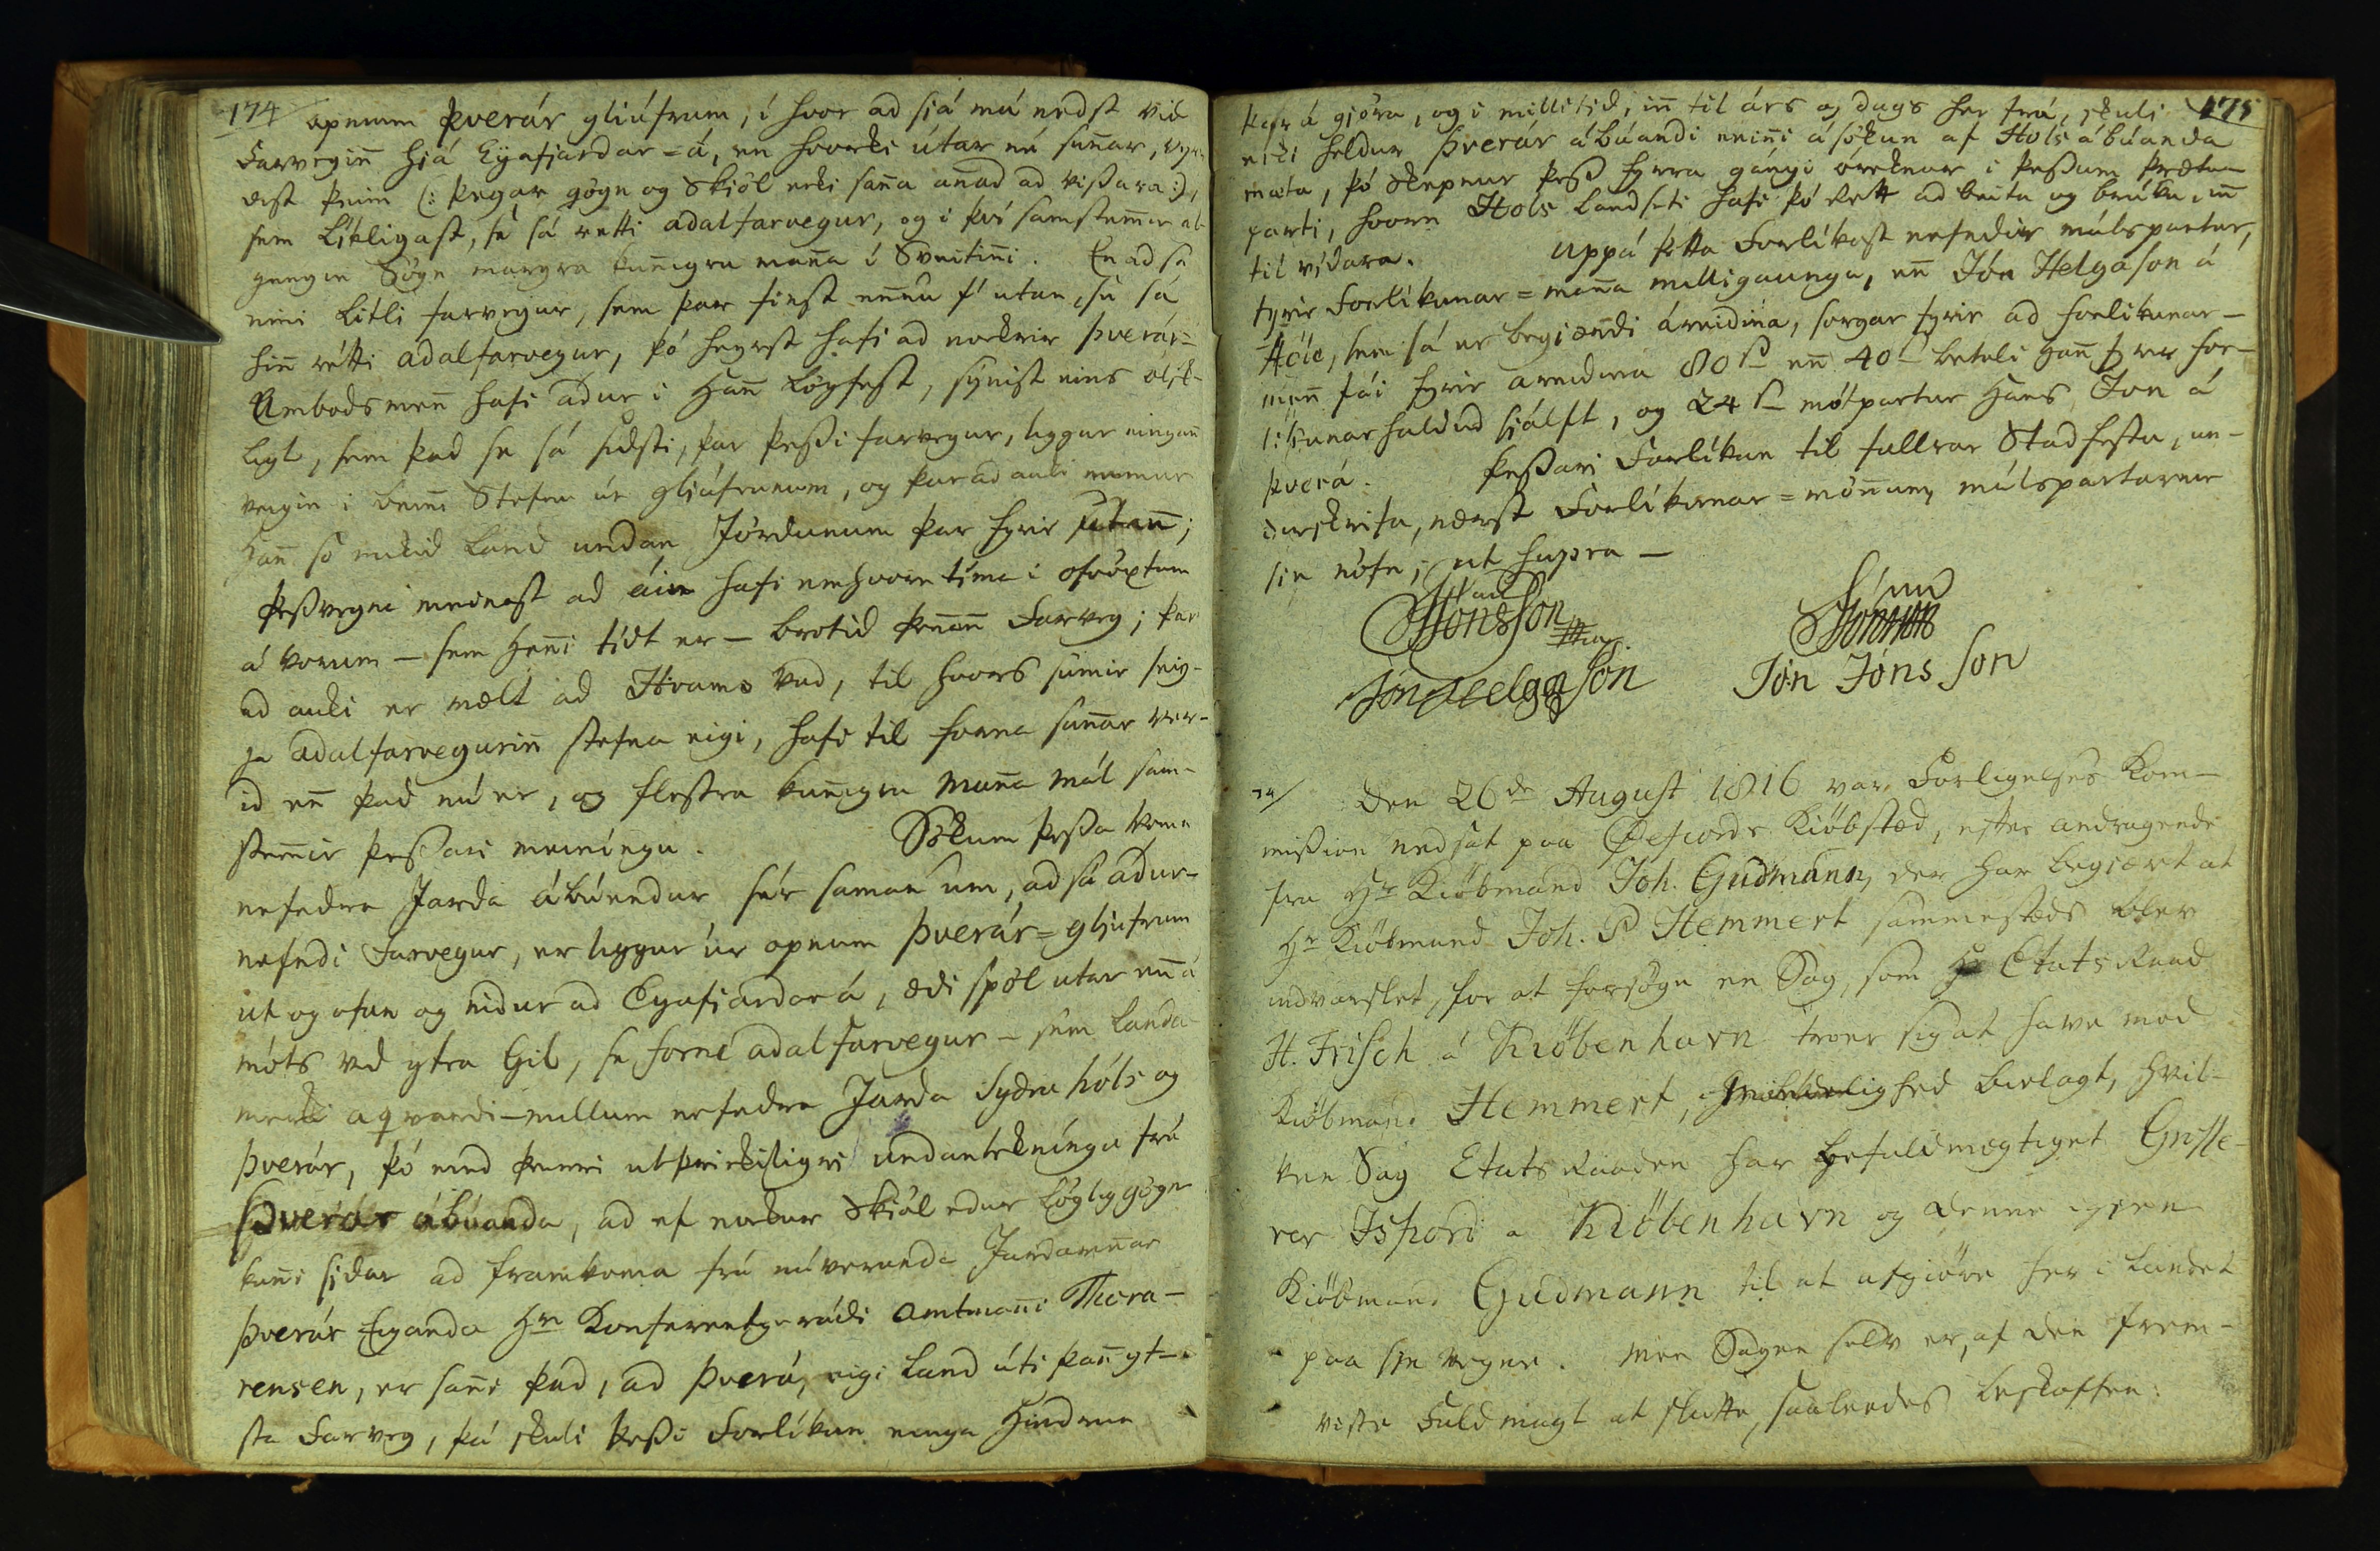 174
opnum Þverár gliúfrum, í hvor ad siá má nedst vid
Farveginn hiá Eyafjardar=á, en hvorki útar né sunnar, vyr-
dist þeim (: þegar gögn og Skiöl ecki sanna annad ad vissara :),
sem Líkligast, sé sá retti adalfarvegur, og i því samstemmir al-
geingin Sögn margra kunnigra manna í Sveitinni. En ad sá
eini litli farvegur, sem þar finst ennú f utan, sé sá
hinn rétti adalfarvegur, þó heyrst hafi ad nockrir Þverár=
Umbodsmenn hafi adur i hann Lögfest, sýnist eins ólík-
legt, sem þad sé sá sidsti, þar þessi farvegur, liggur eingan
veginn i beinni Stefnu úr gliúfrunum, og þarad auki nemur
hann so mikid Land undan Jördunum þar fyrir utann;
þessvegna meinast ad áin hafi einhvorn tíma i ofvöxtum
á vorum – sem henni tídt er – brotid þennann Farveg; þar
ad auki er mælt ad Hvams vad, til hvors sumir seig-
ja adalfarvegurinn stefna eigi, hafi til forna sunnar ver-
id enn þad nú er, og flestra kunnigra manna mál sam-
stemmir þessari meiníngu. Sökum þessa koma
nefndra Jarda ábúendur sér saman um, ad sá adur-
nefndi Farvegur, er liggur úr opnum Þverár=gliufrum
ut og ofan og nidur ad Eyafiardará, ædi spöl utar enn á
móts vid ytra Gil, sé forni adalfarvegur – sem landa-
merki aqvardi – millum nefndra Jarda Sydra hóls og
Þverár, þó med þeirri utþrickiligri undantekníngu frá
Þverár ábúanda, ad ef nockur Skiöl edur Löglig gögn
kunni sidar ad framkoma frá núveranda Jardarinnar
Þverár Eiganda Hrn Konferentzrádi Amtmanni Thora-
rensen, er sanni þad, ad Þverá, eigi Land úti þann yt-
sta Farveg, þá skuli þessi Forlíkun einga Hindrun
175
þarfr á giöra, og i millitid, inn til árs og dags her frá, skuli
ecki heldur Þverár ábúandi neinni ásókun af Hóls ábúanda
mæta, þó Skepnur þess fyrra gángi óreknar i þessum Þrætu
parti, hvorn Hóls Landseti hafi þó Rett ad beita og brúka, inn
til vídara. Uppá þetta Forlíkast nefndir málspartar,
fyrir Forlíkunar=manna milligaungu, enn Jón Helgason á
Hóli, sem sá er begiærdi áreidina, sorgar fyrir ad forlikunar-
menn fái fyrir areidina 80 s enn 40 s betali hann fyrir for-
likunarhaldid sjálft, og 24 s mótpartur hans Jon á
Þverá. Þessari Forlíkun til fullrar Stadfestu, un-
durskrifa, næst Forlíkunar=mönnum, málspartarnir
sin nöfn, ut supra –
JJónsson
Jónsson
Jón Helgason Jón Jóns son
74/ Den 26de August 1816 var Forligelses Kom-
mission nedsat paa Øefiords Kiöbstæd, efter andragende
fra Hr Kiöbmand Joh. Gudmann, der har begiært at
Hr Kiöbmand Joh. P Hemmert sammesteds blev
indvarslet, for at forsöge en Sag, som Hr Etats Raad
H. Frisch á Kiöbenhavn troer sig at have mod
Kiöbmand Hemmert, i Mindelighed bielagt, hvil-
ken Sag Etats Raaden har befuldmægtiget Grosse-
rer Isfiord a Kiöbenhavn og denne igien
Kiöbmand Gudmann til at afgiöre her i Landet
paa sin vegne. Men Sagen selv er, af den frem-
viste Fuldmagt at slutte, saaledes beskaffen: